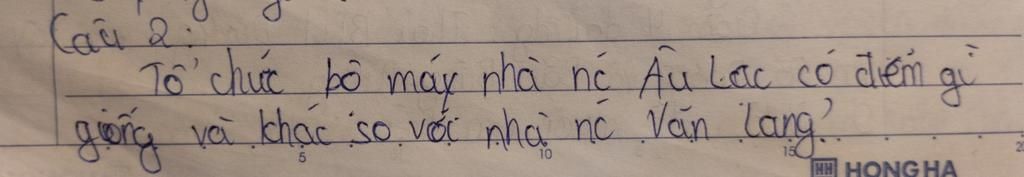 Câu 2:
Tổ chức bộ máy nhà nc Âu Lạc có điểm gì
giống và khác so với nhà nc Văn Lang?
5 10 15 20
HH HONG HA